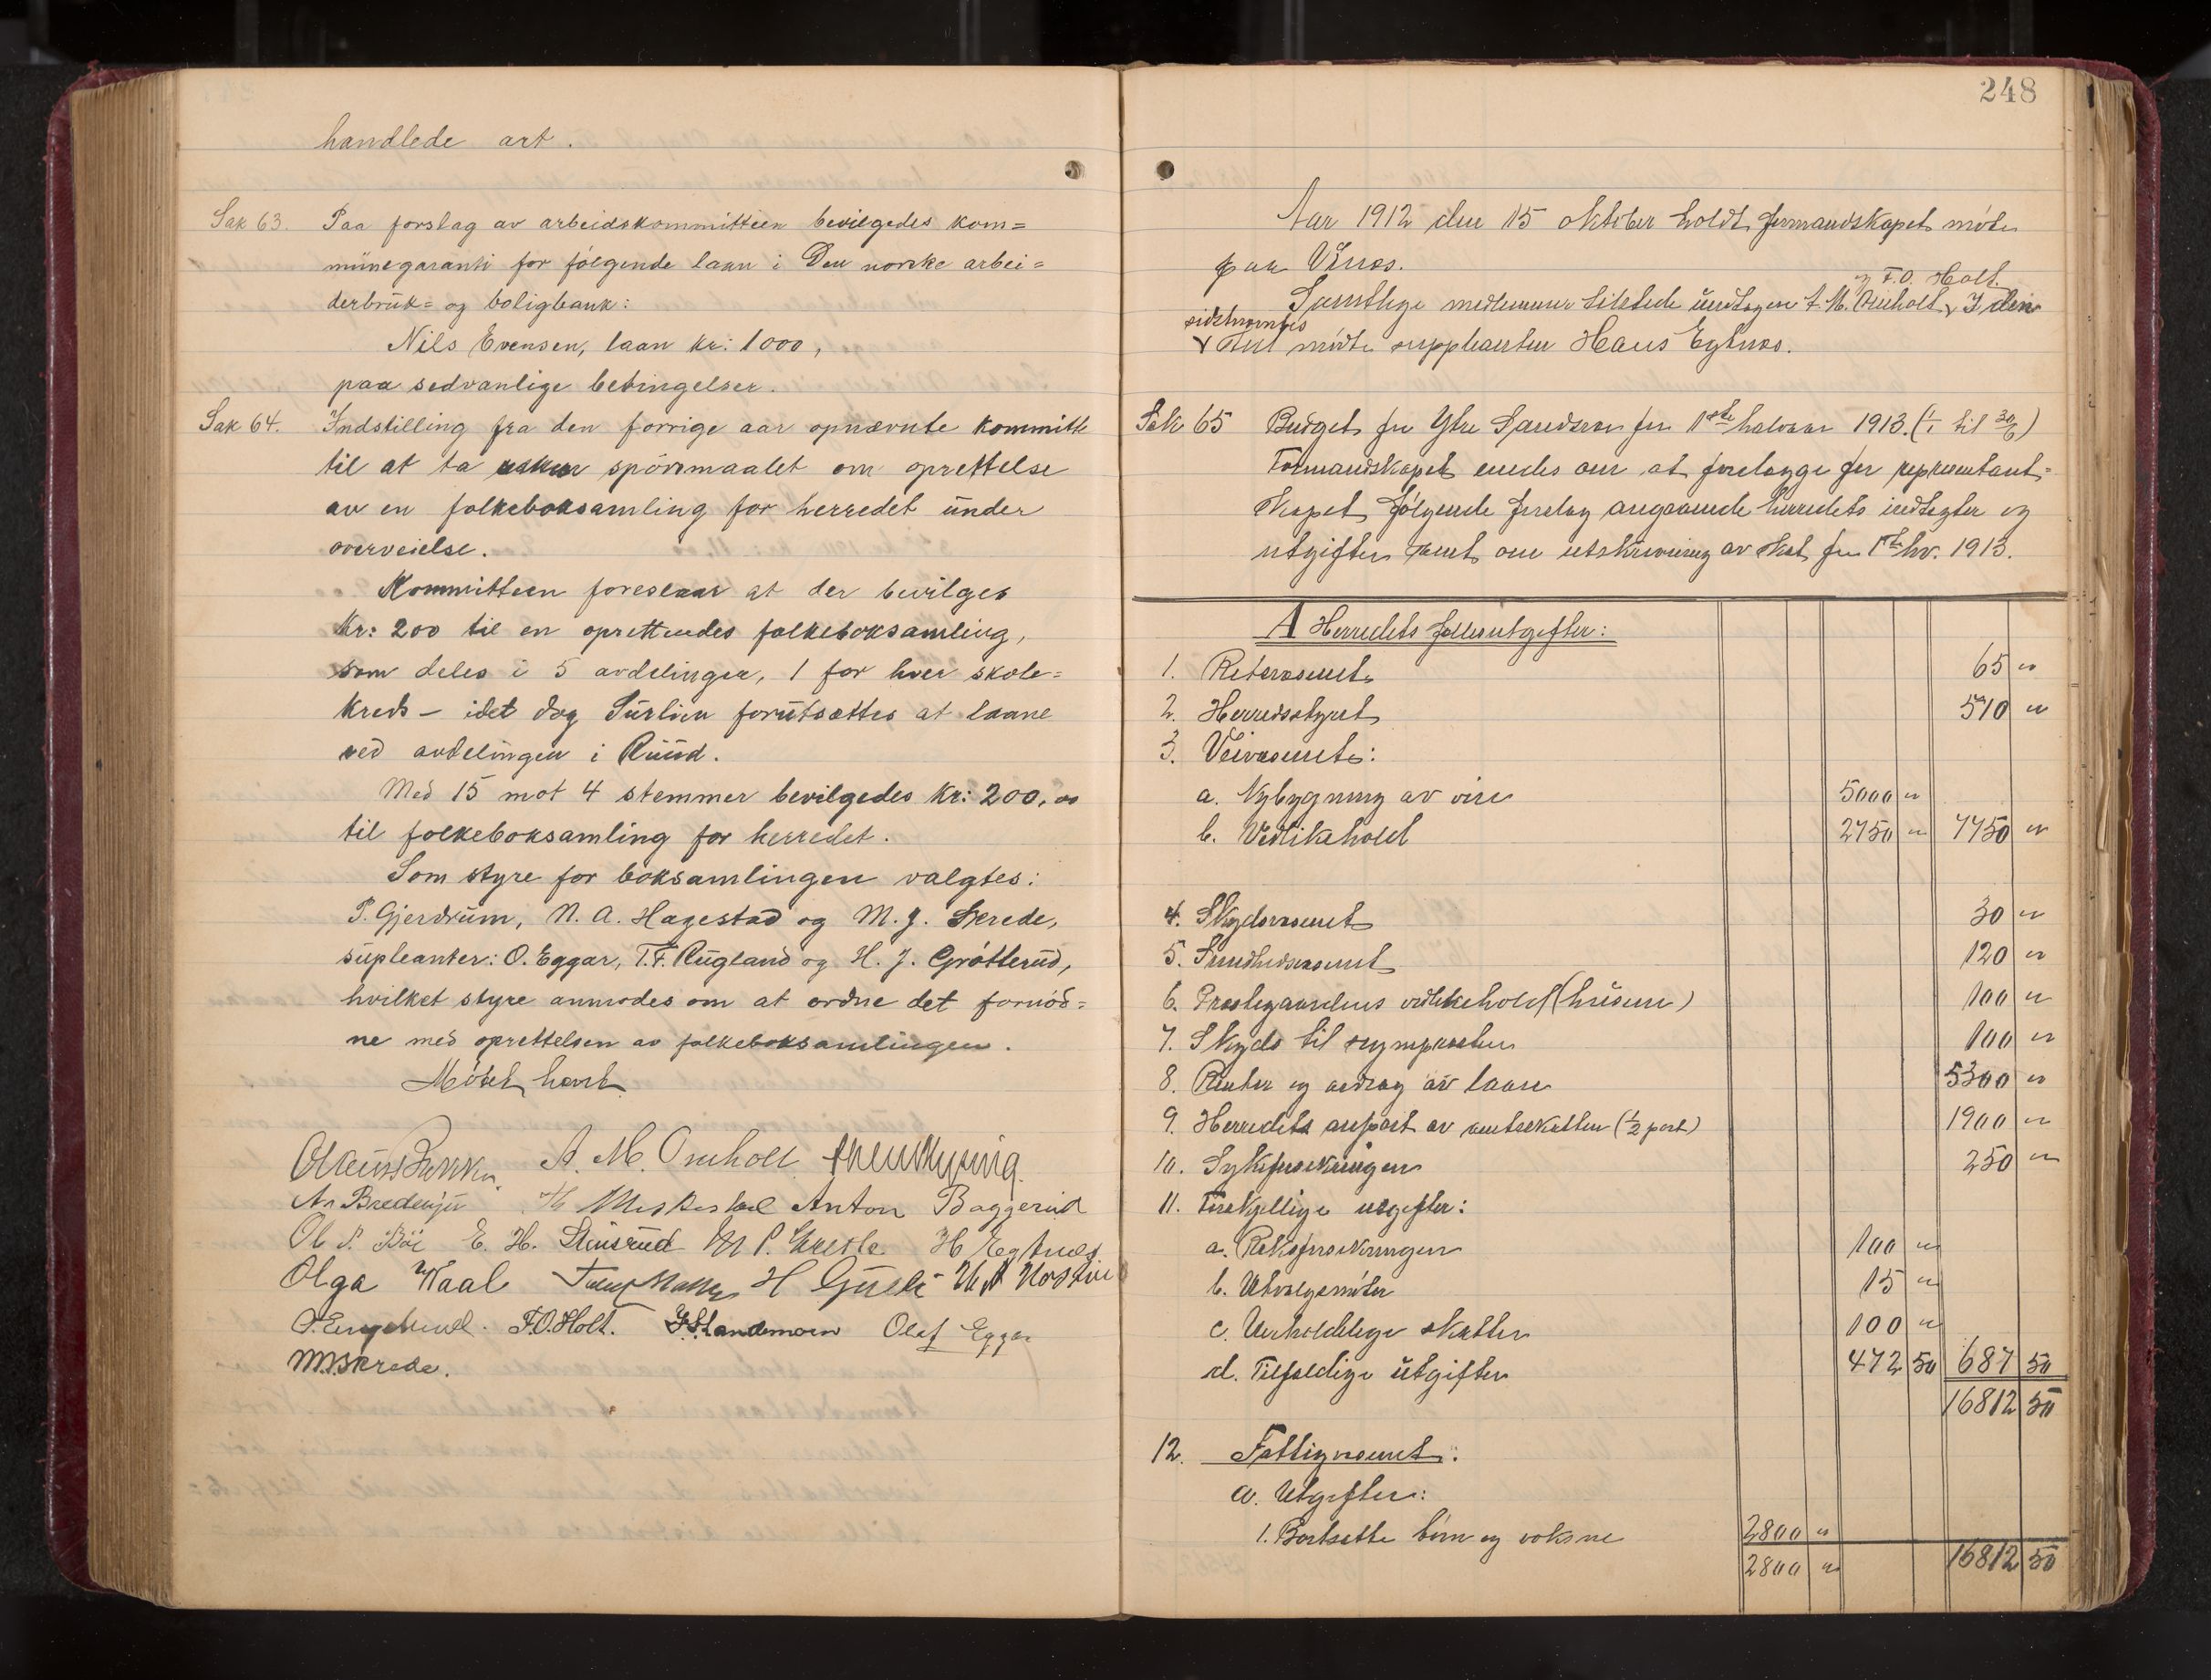 handlede art.
Sak 63. Paa forslag av arbeidskommitteen bevilgedes kom=
munegaranti for følgende laan i Den norske arbei=
derbruk= og boligbank:
Nils Evensen, laan kr: 1000,
paa sedvanlige betingelser.
Sak 64. Indstilling fra den forrige aar opnævnte kommitte
til at ta spörsmaalet om oprettelse
av en folkeboksamling for herredet under
overveielse.
Kommitteen foreslaar at der bevilges
Kr: 200 til en oprettendes folkeboksamling,
som deles i 5 avdelinger, 1 for hver skole=
kreds – idet dog Surlien forutsættes at laane
ved avdelingen i Ruud.
Med 15 mot 4 stemmer bevilgedes Kr: 200,00
til folkeboksamling for herredet.
Som styre for boksamlingen valgtes:
P. Gjerdrum, N. A. Hagestad og M. J. Skrede,
supleanter: O. Eggar, T. F. Rugland og H. J. Grótterud,
hvilket styre anmodes om at ordne det fornód=
ne med oprettelsen av folkeboksamlingen.
Mótet hævt
A. M. Omholt
Anton Baggerud
Ol P. Böe E. H. Stensrud H Eghnes
Olga Waal H Gusli
F. O. Holt. Landemoen Olaf Eggar
Skrede.
248
Aar 1912 den 15 oktober holdt formandskapet møte
paa Vinæs.
og F. O. Holt.
Samtlige medlemmer tilstede undtagen A. M. Omholt v I den
sidstnævntes
v sted møtte suppleanten Hans Eghnæs.
Sak 65 Budget for Ytre Sandsvær for 1ste halvaar 1913. (1/1 til 30/6)
Formandskapet enedes om at forelægge for representant=
skapet følgende forslag angaaende herredets indtægter og
utgifter samt om utskrivning av skat for 1ste hv. 1913.
A Herredets fællesutgifter:
1. Retsvæsenet 65 "
2. Herredsstyret 510 "
3. Veivæsenet:
a. Nybygning av veie 5000 "
b. Vedlikehold 2750 " 7750 "
4. Skydsvæsenet 30 "
5. Sundhedsvæsenet 120 "
6. Prestegaardens vedlikehold (husene) 100 "
7. Skyds til sogneprесten 100 "
8. Renter og avdrag av laan 5300 "
9. Herredets anpart av amtsskatten (1/2 part) 1900 "
10. Sykeforsikringen 250 "
11. Forskjellige utgifter:
a. Riksforsikringen 100 "
b. Utvalgsmøter 15 "
c. Uerholdelige skatter 100 "
d. Tilfældige utgifter 472 50 687 50
16812 50
12. Fattigvæsenet:
a. Utgifter:
1. Bortsatte børn og voksne 2800 "
2800 " 16812 50